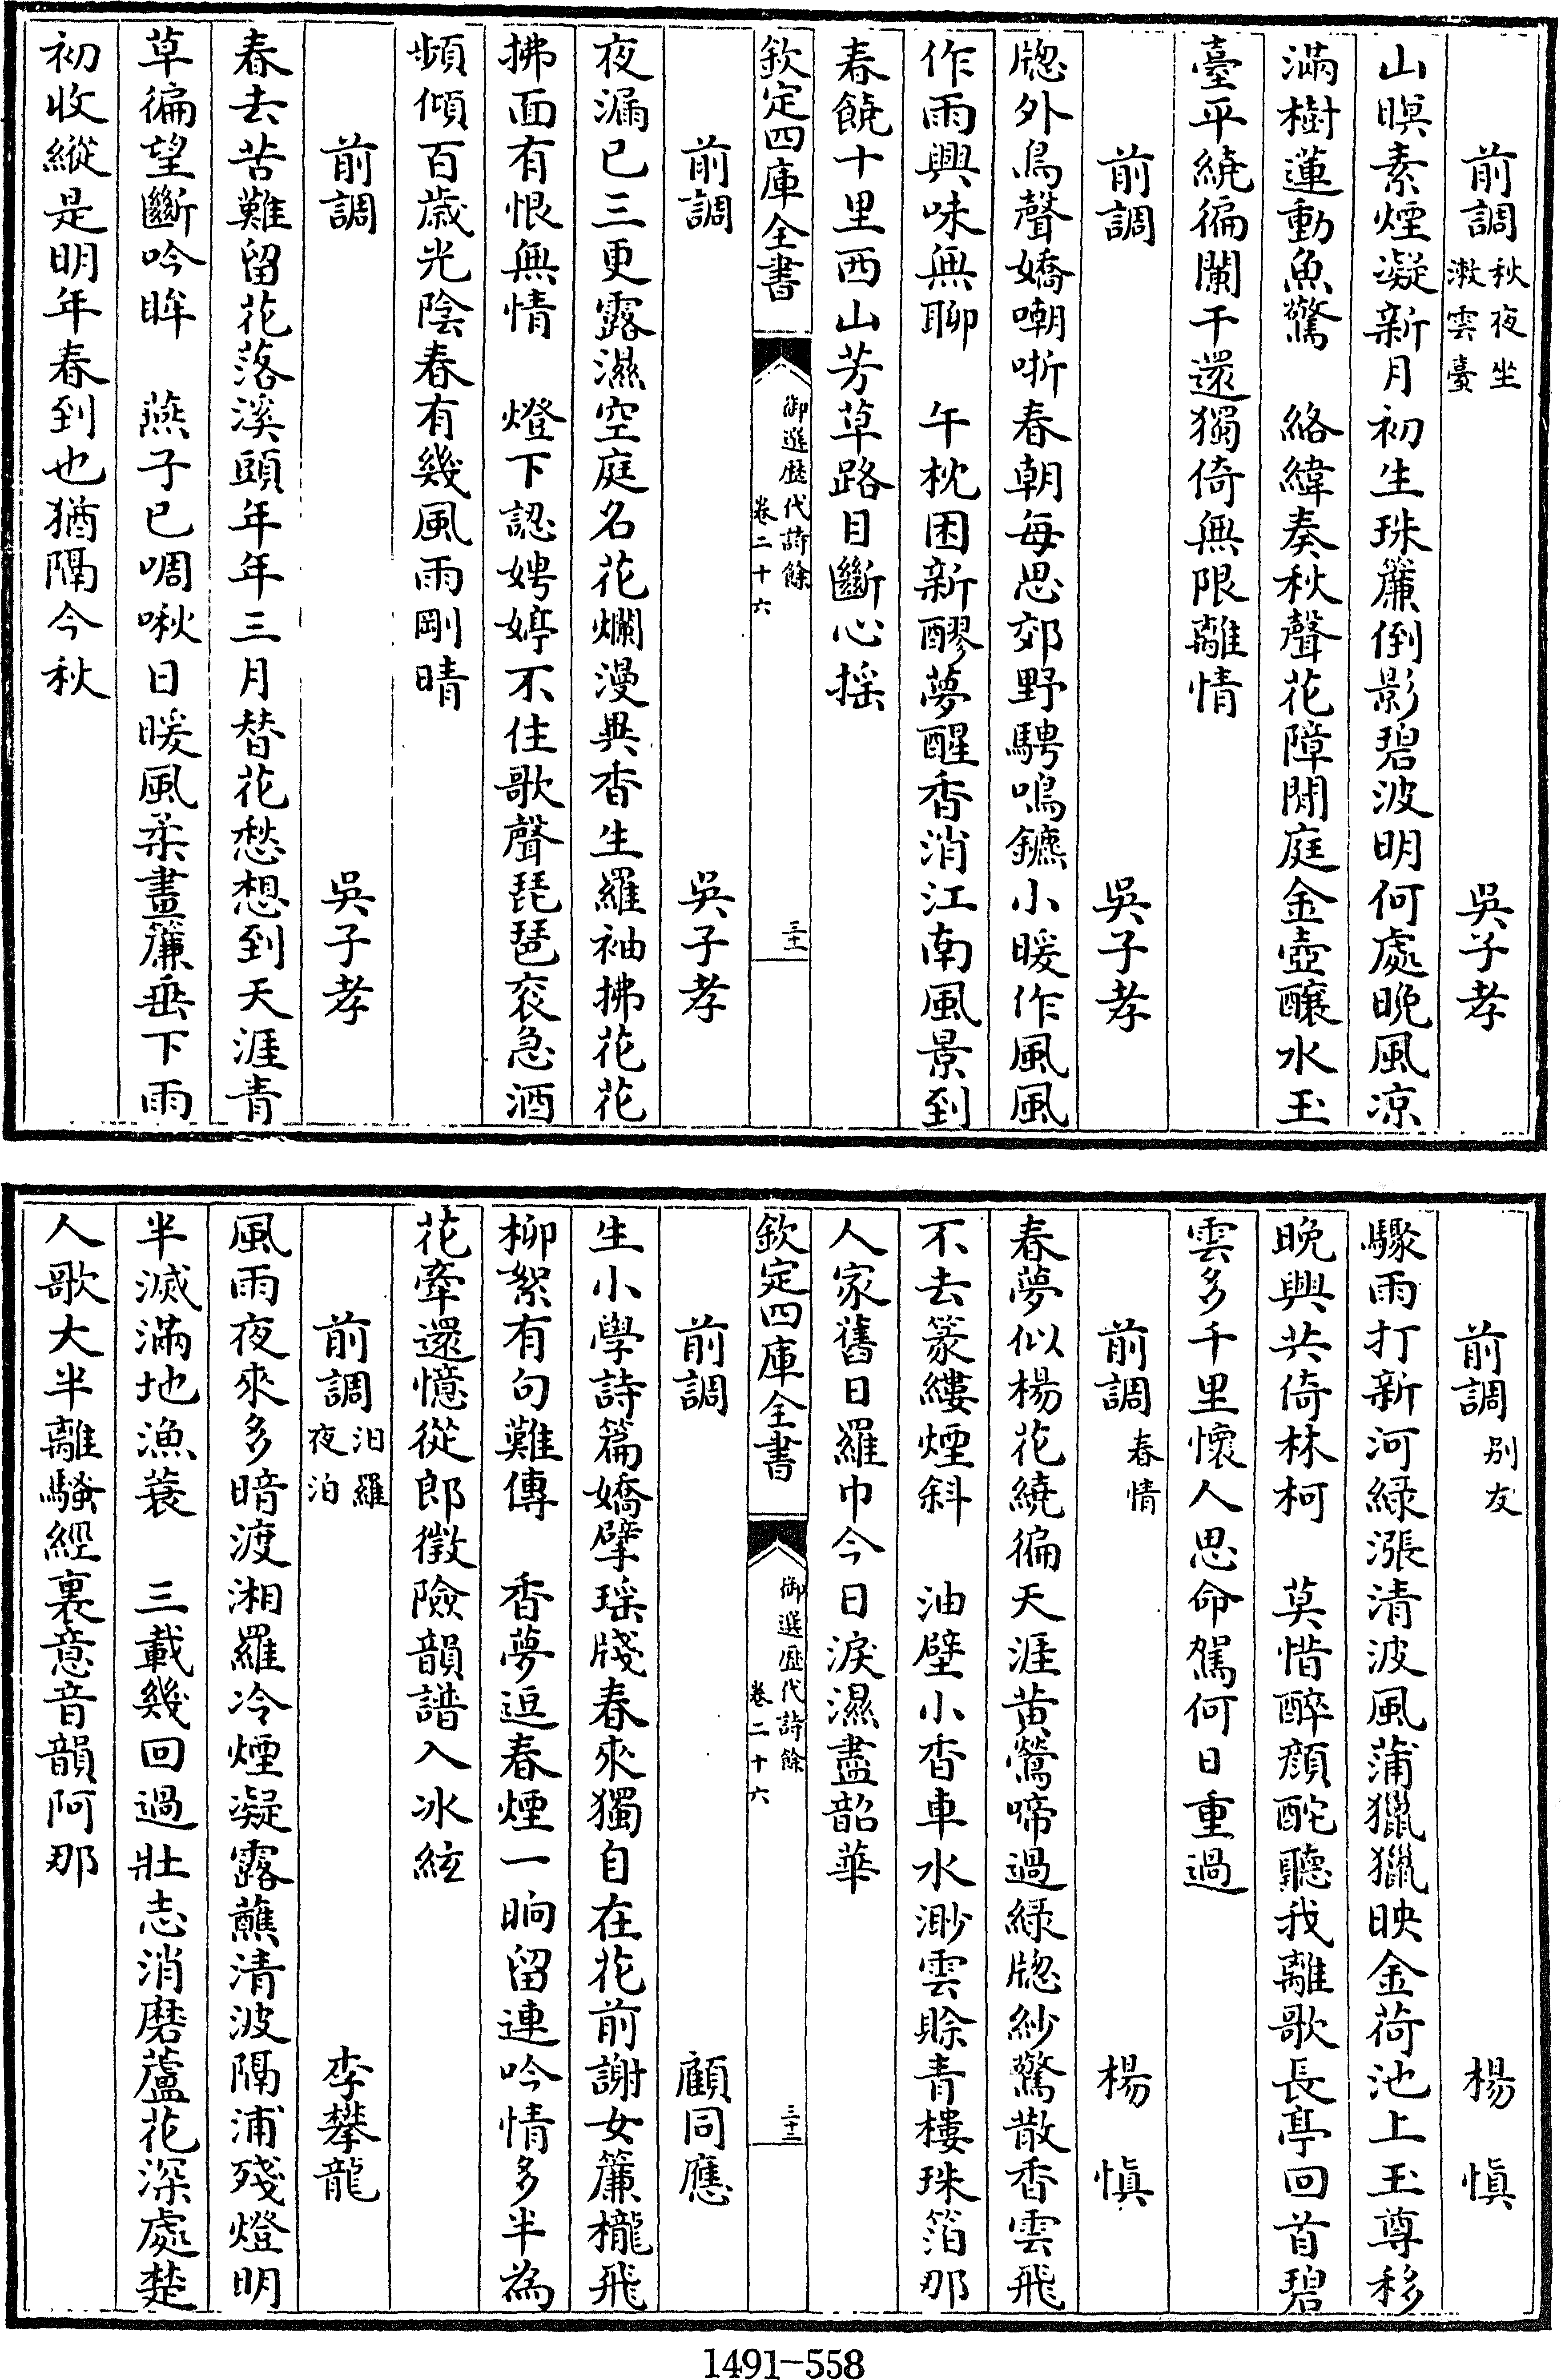 前調秋夜坐漱雲臺　吳子孝
山暝素煙凝新月初生珠簾倒影碧波明何處晚風涼
滿樹蓮動魚驚　絡緯奏秋聲花障閒庭金壺釀水玉
臺平繞徧闌干還獨倚無限離情
前調　吳子孝
牕外鳥聲嬌嘲哳春朝每思郊野騁鳴鑣小暖作風風
作雨興味無聊　午枕困新醪夢醒香消江南風景到
春饒十里西山芳草路目斷心摇
欽定四庫全書　御選歷代詩餘卷二十六　三十一
前調　吳子孝
夜漏已三更露濕空庭名花爛漫異香生羅袖拂花花
拂面有恨無情　燈下認娉婷不住歌聲琵琶衮急酒
頻傾百歲光陰春有幾風雨剛晴
前調　吳子孝
春去苦難留花落溪頭年年三月替花愁想到天涯青
草徧望斷吟眸　燕子已啁啾日暖風柔畫簾垂下雨
初收縱是明年春到也猶隔今秋
前調别友　楊慎
驟雨打新河綠漲清波風蒲獵獵映金荷池上玉尊移
晚興共倚林柯　莫惜醉顔酡聽我離歌長亭回首碧
雲多千里懷人思命駕何日重過
前調春情　楊慎
春夢似楊花繞徧天涯黄鶯啼過緑牕紗驚散香雲飛
不去篆縷煙斜　油壁小香車水渺雲賒青樓珠箔那
人家舊日羅巾今日淚濕盡韶華
欽定四庫全書　御選歷代詩餘卷二十六　三十二
前調　顧同應
生小學詩篇嬌擘瑶牋春來獨自在花前謝女簾櫳飛
柳絮有句難傳　香夢逗春煙一晌留連吟情多半為
花牽還憶從郎徵險韻譜入冰絃
前調汨羅夜泊　李攀龍
風雨夜來多暗渡湘羅冷煙凝露蘸清波隔浦殘燈明
半滅滿地漁蓑　三載幾回過壯志消磨蘆花深處楚
人歌大半離騷經裏意音韻阿那
1491-558